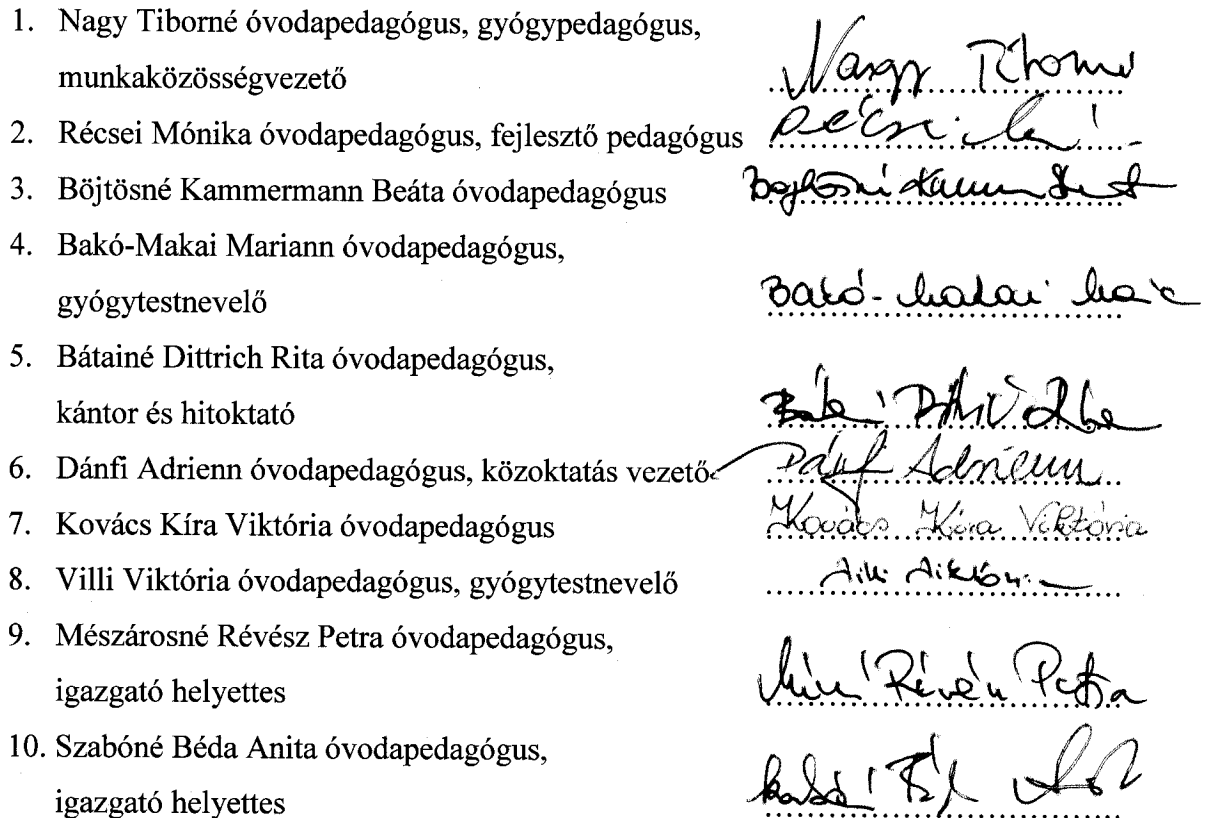 1. Nagy Tiborné óvodapedagógus, gyógypedagógus,
munkaközösségvezető
Nagy Tiborné
2. Récsei Mónika óvodapedagógus, fejlesztő pedagógus
Récsei
3. Böjtösné Kammermann Beáta óvodapedagógus
4. Bakó-Makai Mariann óvodapedagógus,
gyógytestnevelő
Bakó-Makai
5. Bátainé Dittrich Rita óvodapedagógus,
kántor és hitoktató
6. Dánfi Adrienn óvodapedagógus, közoktatás vezető
Dánfi Adrienn
7. Kovács Kíra Viktória óvodapedagógus
Kovács Kíra Viktória
8. Villi Viktória óvodapedagógus, gyógytestnevelő
Villi Viktória
9. Mészárosné Révész Petra óvodapedagógus,
igazgató helyettes
Révész Petra
10. Szabóné Béda Anita óvodapedagógus,
igazgató helyettes